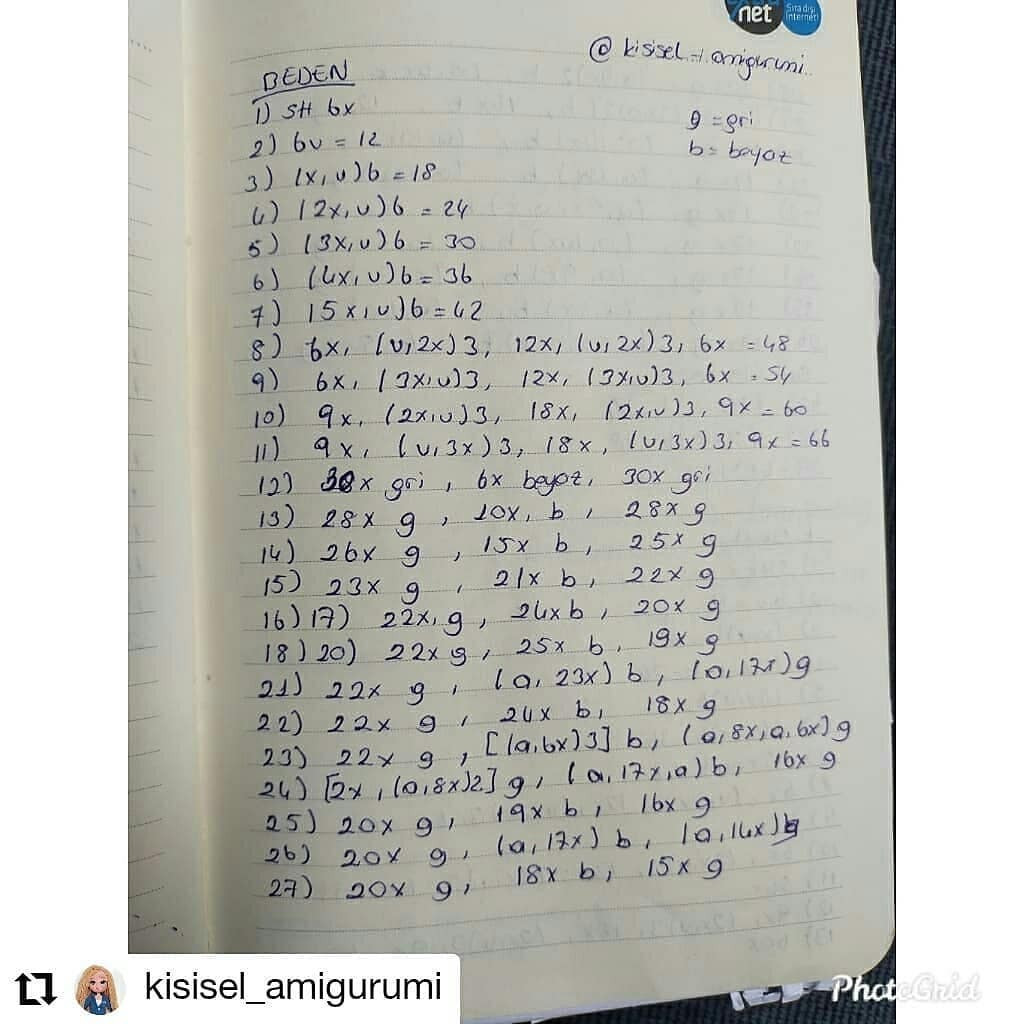 net Sıra dışı
İnternet!
@ kisisel_amigurumi
BEDEN
g = gri
b = beyaz
1) SH 6x
2) 6v = 12
3) (x, v) 6 = 18
4) (2x, v) 6 = 24
5) (3x, v) 6 = 30
6) (4x, v) 6 = 36
7) (5x, v) 6 = 42
8) 6x, (v, 2x) 3, 12x, (v, 2x) 3, 6x = 48
9) 6x, (3x, v) 3, 12x, (3x, v) 3, 6x = 54
10) 9x, (2x, v) 3, 18x, (2x, v) 3, 9x = 60
11) 9x, (v, 3x) 3, 18x, (v, 3x) 3, 9x = 66
12) 30x gri, 6x beyaz, 30x gri
13) 28x g, 10x, b, 28x g
14) 26x g, 15x b, 25x g
15) 23x g, 21x b, 22x g
16) 17) 22x, g, 24x b, 20x g
18) 20) 22x g, 25x b, 19x g
21) 22x g, (a, 23x) b, (a, 17x) g
22) 22x g, 24x b, 18x g
23) 22x g, [(a, 6x) 3] b, (a, 8x, a, 6x) g
24) [2x, (a, 8x) 2] g, (a, 17x, a) b, 16x g
25) 20x g, 19x b, 16x g
26) 20x g, (a, 17x) b, (a, 14x) g
27) 20x g, 18x b, 15x g
kisisel_amigurumi
PhotoGrid